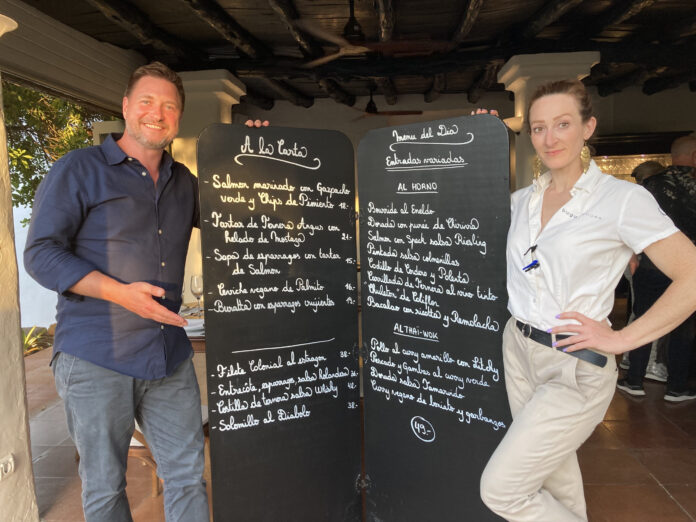 A la Carta
- Salmon marinado con Gazpacho
verde y Chips de Pimiento 18.-
- Tartar de Ternera Angus con
helado de Mostaza 21.-
- Sopa de esparragos con tartar
de Salmon 15.-
- Ceviche vegano de Palmito 16.-
- Burratta con esparragos crujientes 19.-
- Filete Colonial al estragon 38.-
- Entrecôte, esparragos, salsa holandesa 36.-
- Costilla de ternera salsa Wisky 42.-
- Solomillo al Diabolo 38.-
Menu del Dia
Entradas variadas
AL HORNO
Bourride al Eneldo
Dorada con puree de Chirivia
Salmon con Speck salsa Riesling
Pintada salsa colmenillas
Costilla de Cordero y Polenta
Carrillada de Ternera al vino tinto
Chuleton de Coliflor
Bacalao con risotto y Remolacha
AL THAI-WOK
Pollo al curry amarillo con Litchy
Pescado y Gambas al curry verde
Dorada salsa Tamarindo
Curry vegano de boniato y garbanzos
49.-